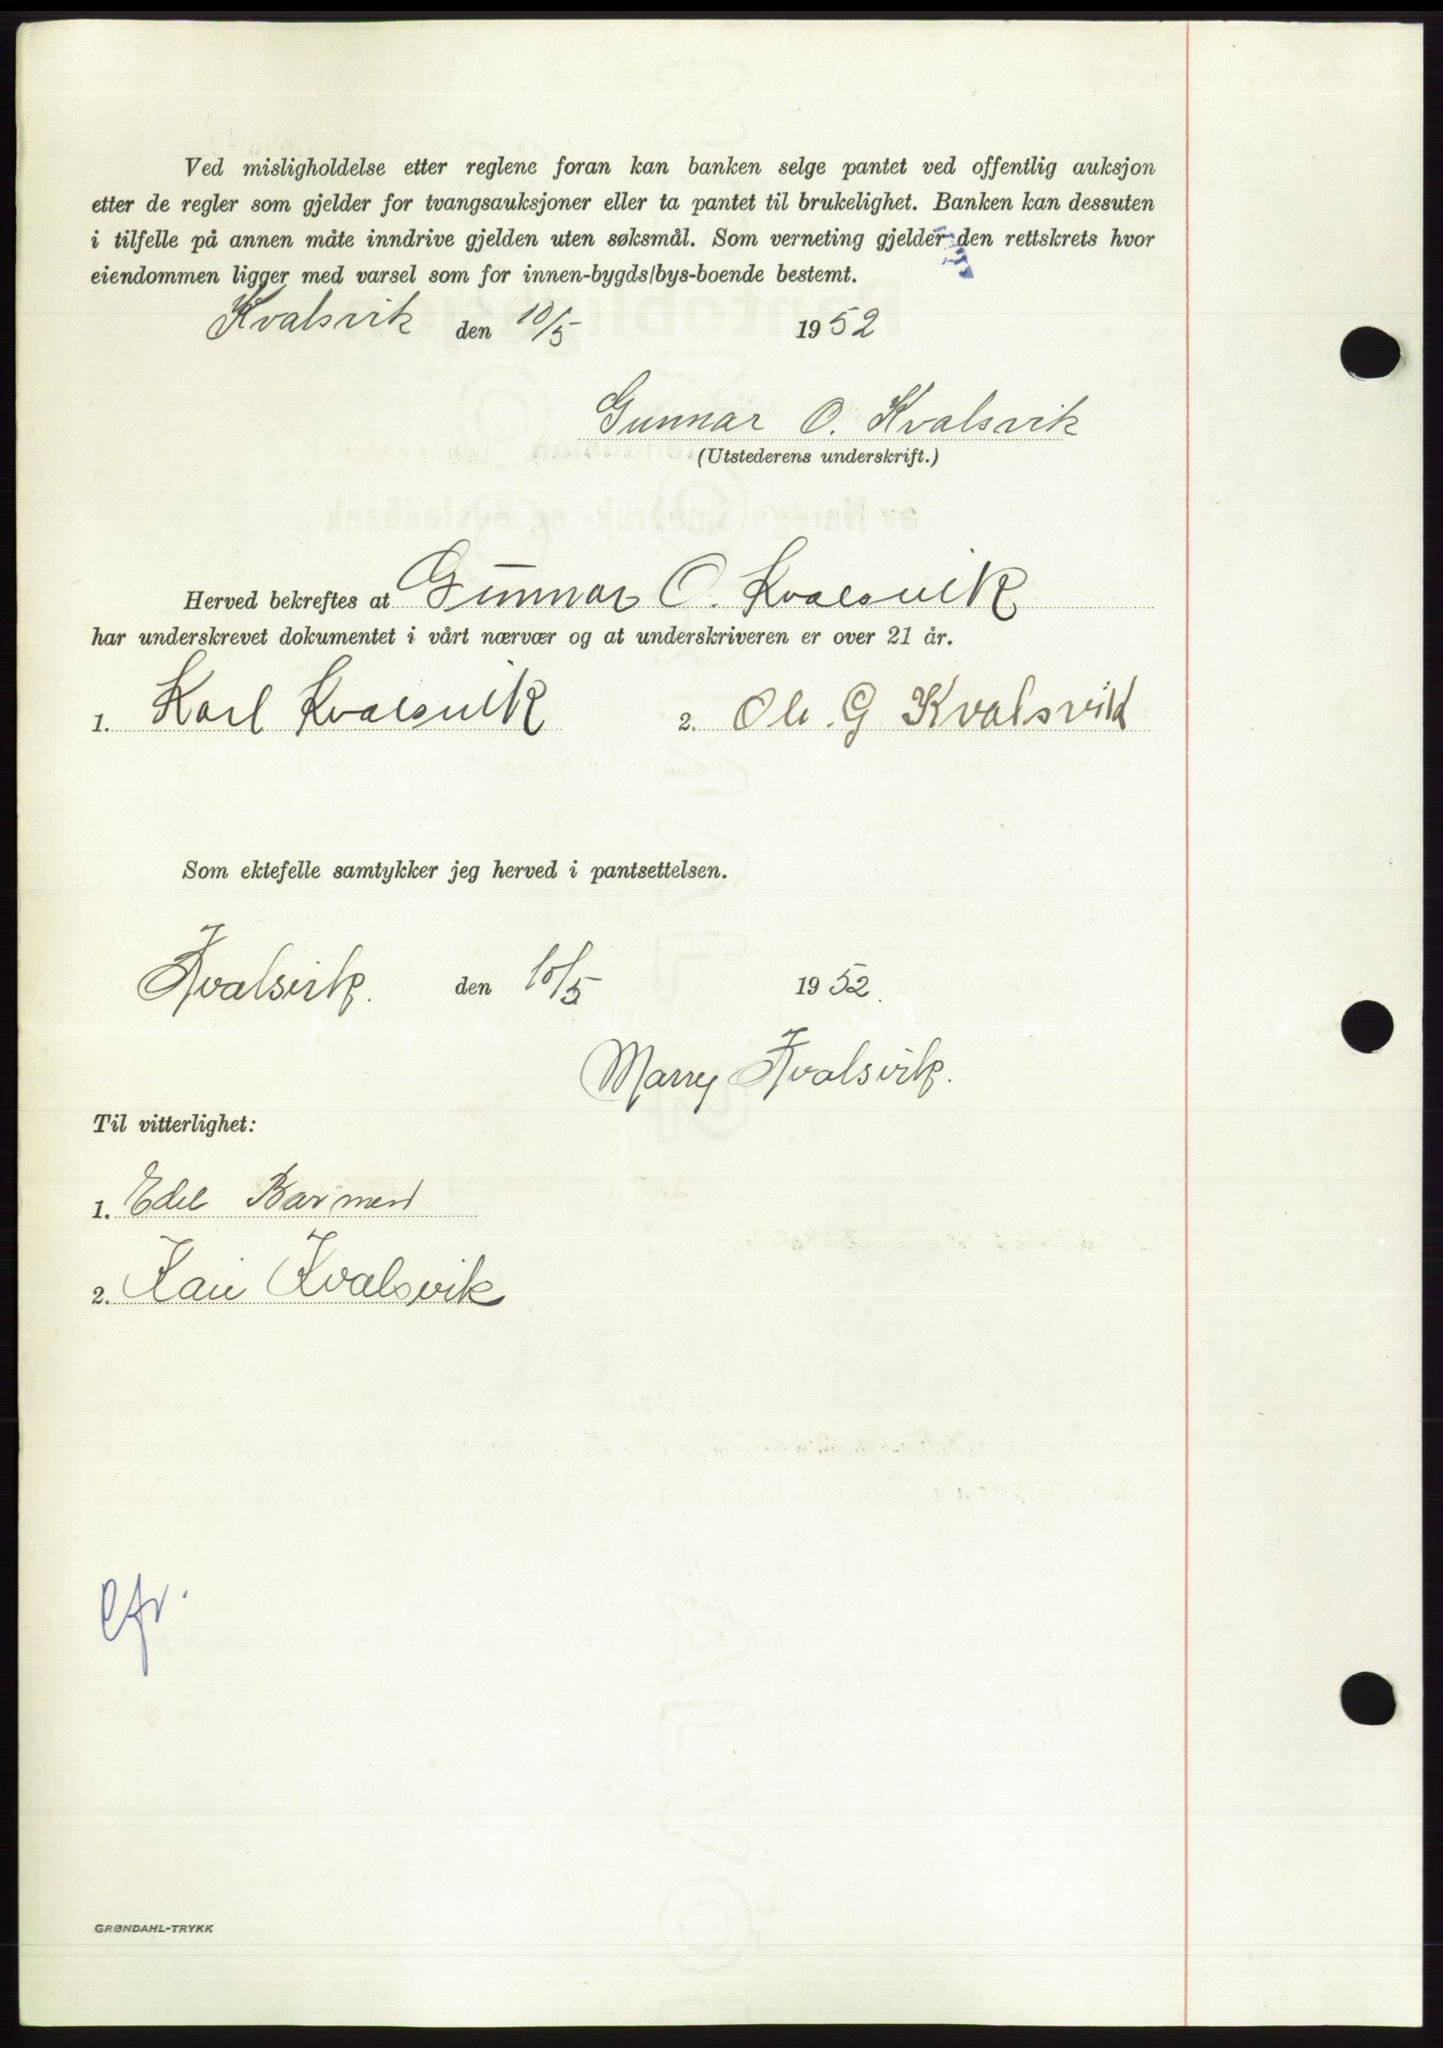 Ved misligholdelse etter reglene foran kan banken selge pantet ved offentlig auksjon
etter de regler som gjelder for tvangsauksjoner eller ta pantet til brukelighet. Banken kan dessuten
i tilfelle på annen måte inndrive gjelden uten søksmål. Som verneting gjelder den rettskrets hvor
eiendommen ligger med varsel som for innen-bygds/bys-boende bestemt.
Kvalsvik den 10/5 1952
Gunnar O. Kvalsvik
(Utstederens underskrift.)
Herved bekreftes at Gunnar O. Kvalsvik
har underskrevet dokumentet i vårt nærvær og at underskriveren er over 21 år.
1. Karl Kvalsvik 2. Ole G Kvalsvik
Som ektefelle samtykker jeg herved i pantsettelsen.
Kvalsvik. den 10/5 1952.
Marry Kvalsvik.
Til vitterlighet:
1. Edel Barmen
2. Kari Kvalsvik
GRØNDAHL-TRYKK